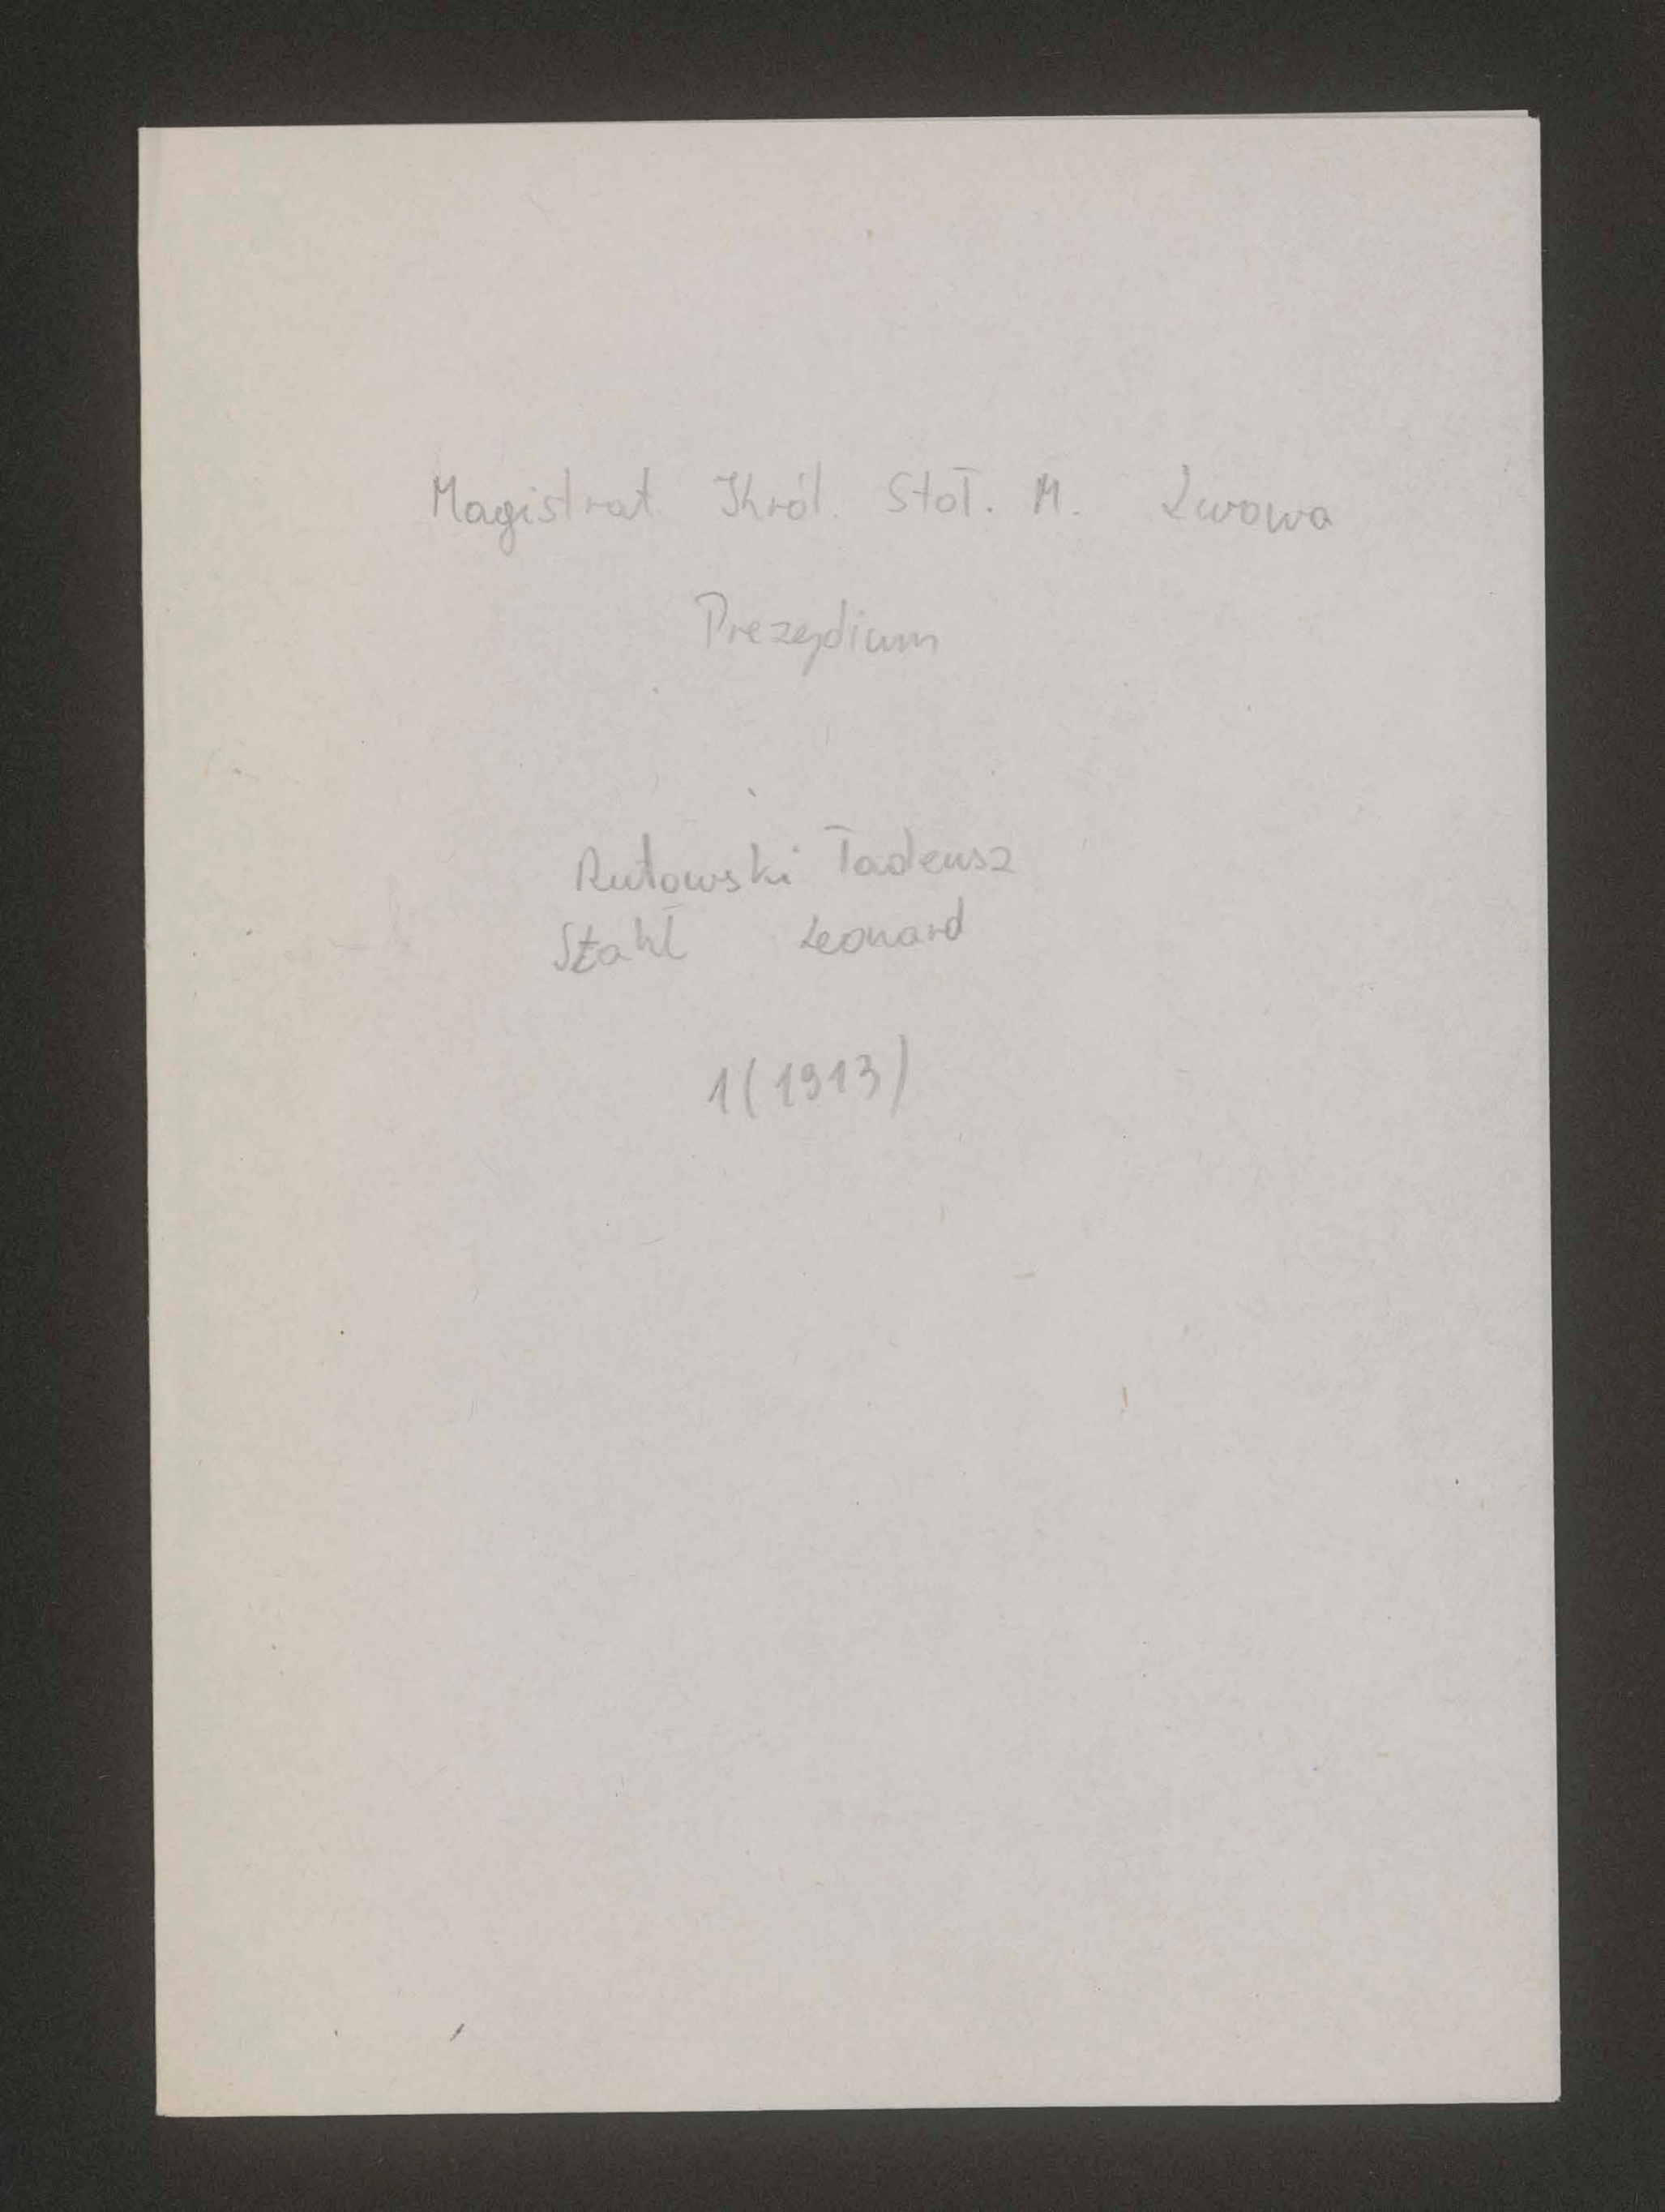 Magistrat Król. Stoł. M. Lwowa
Prezydium
Rutowski Tadeusz
Stahl Leonard
1(1913)